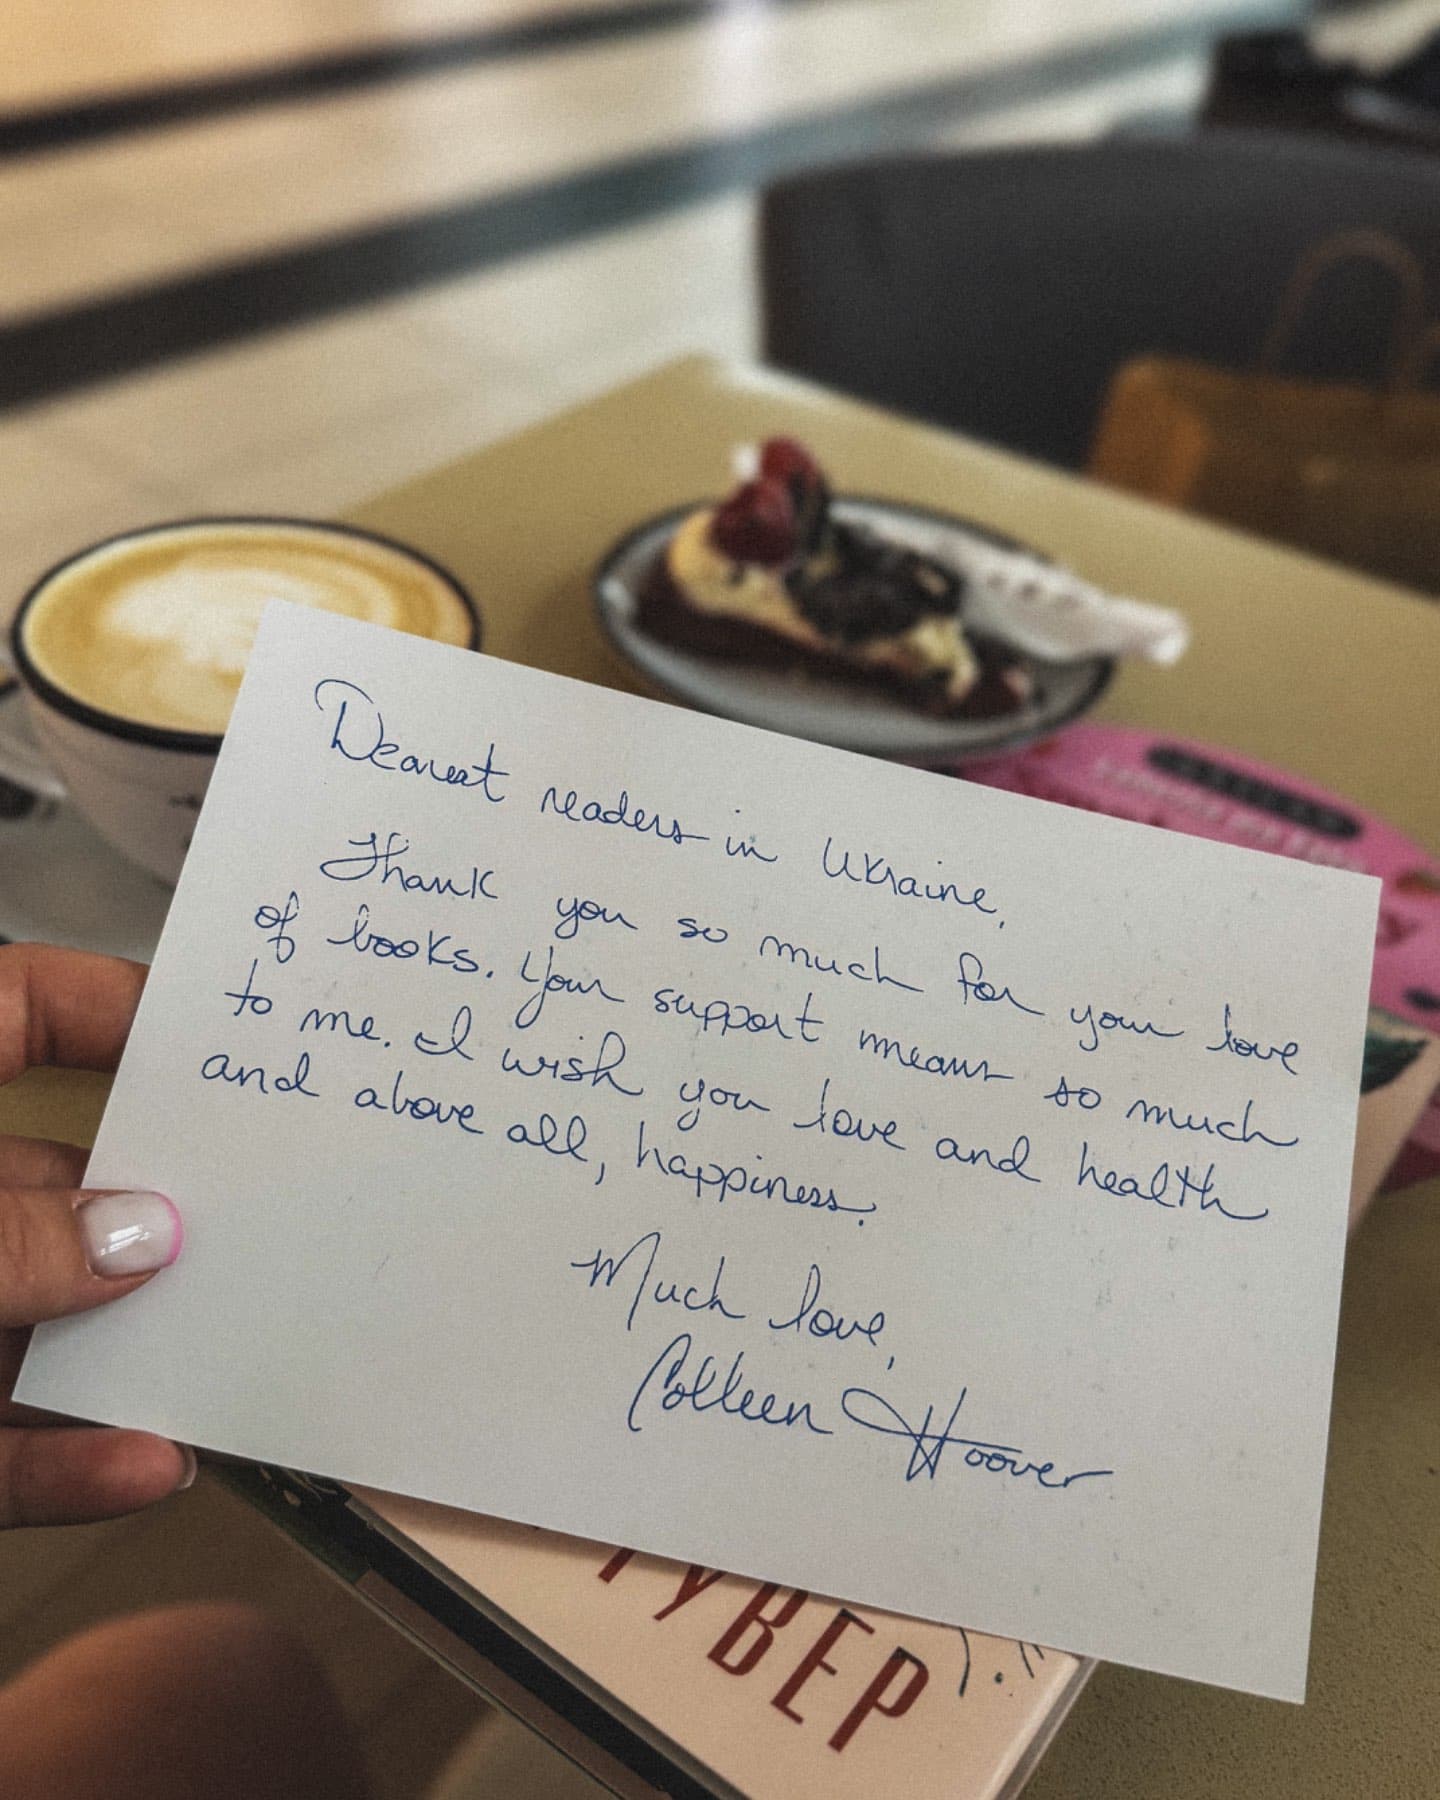 Dearest readers in Ukraine,
Thank you so much for your love
of books. Your support means so much
to me. I wish you love and health
and above all, happiness.
Much love,
Colleen Hoover
ГУВЕР